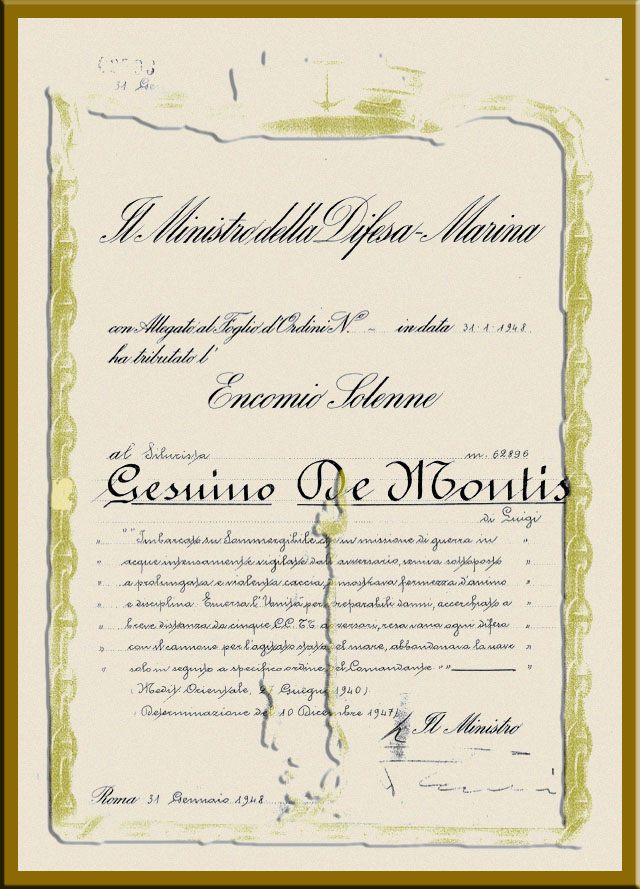 31
Il Ministro della Difesa-Marina
con Allegato al Foglio d'Ordini N.º - in data 31.1.1948.
ha tributato l'
Encomio Solenne
al Silurista m. 62896
Gesuino De Montis
di Luigi
"" Imbarcato su Sommergibile in missione di guerra in "
" acque intensamente vigilate dall'avversario, veniva sottoposto "
" a prolungata e violenta caccia, dimostrava fermezza d'animo "
" e disciplina. Emersa l'Unità per irreparabili danni, accerchiato a "
" breve distanza da cinque CC.TT. avversari, resa vana ogni difesa "
" con il cannone per l'agitato stato del mare, abbandonava la nave "
" solo in seguito a specifico ordine del Comandante "" "
(Medit. Orientale, Giugno 1940)
Determinazione del 10 Dicembre 1947)
Il Ministro
Roma 31 Gennaio 1948